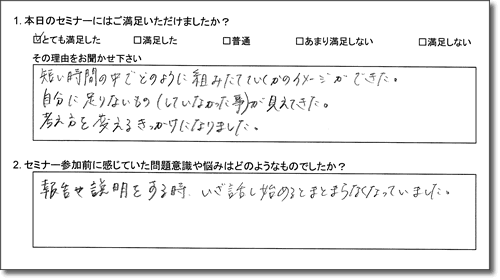 1. 本日のセミナーにはご満足いただけましたか？
☑とても満足した　□満足した　□普通　□あまり満足しない　□満足しない
その理由をお聞かせ下さい
短い時間の中でどのように組みたてていくかのイメージができた。
自分に足りないもの(していなかった事)が見えてきた。
考え方を変えるきっかけになりました。
2. セミナー参加前に感じていた問題意識や悩みはどのようなものでしたか？
報告や説明をする時、いざ話し始めるとまとまらなくなっていました。